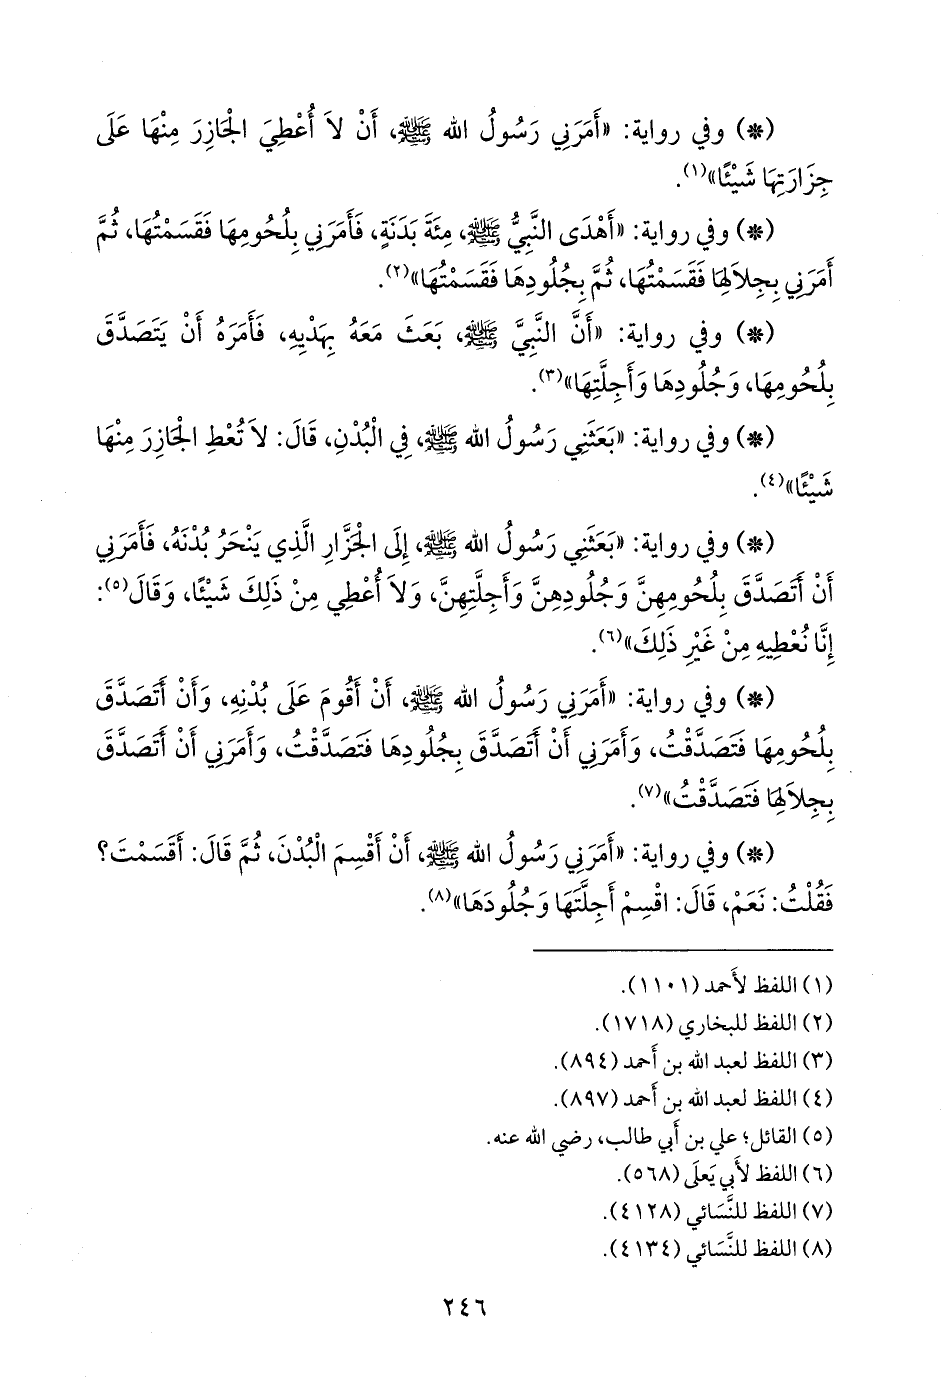 (*) وفي رواية: «أَمَرَنِي رَسُولُ الله ﷺ، أَنْ لاَ أُعْطِيَ الْجَازِرَ مِنْهَا عَلَى
جِزَارَتِهَا شَيْئًا»(١).
(*) وفي رواية: «أَهْدَى النَّبِيُّ ﷺ، مِئَةَ بَدَنَةٍ، فَأَمَرَنِي بِلُحُومِهَا فَقَسَمْتُهَا، ثُمَّ
أَمَرَنِي بِجِلاَلِهَا فَقَسَمْتُهَا، ثُمَّ بِجُلُودِهَا فَقَسَمْتُهَا»(٢).
(*) وفي رواية: «أَنَّ النَّبِيَّ ﷺ، بَعَثَ مَعَهُ بِهَدْيِهِ، فَأَمَرَهُ أَنْ يَتَصَدَّقَ
بِلُحُومِهَا، وَجُلُودِهَا وَأَجِلَّتِهَا»(٣).
(*) وفي رواية: «بَعَثَنِي رَسُولُ الله ﷺ، فِي الْبُدْنِ، قَالَ: لاَ تُعْطِ الْجَازِرَ مِنْهَا
شَيْئًا»(٤).
(*) وفي رواية: «بَعَثَنِي رَسُولُ الله ﷺ، إِلَى الْجَزَّارِ الَّذِي يَنْحَرُ بُدْنَهُ، فَأَمَرَنِي
أَنْ أَتَصَدَّقَ بِلُحُومِهِنَّ وَجُلُودِهِنَّ وَأَجِلَّتِهِنَّ، وَلاَ أُعْطِي مِنْ ذَلِكَ شَيْئًا، وَقَالَ(٥):
إِنَّا نُعْطِيهِ مِنْ غَيْرِ ذَلِكَ»(٦).
(*) وفي رواية: «أَمَرَنِي رَسُولُ الله ﷺ، أَنْ أَقُومَ عَلَى بُدْنِهِ، وَأَنْ أَتَصَدَّقَ
بِلُحُومِهَا فَتَصَدَّقْتُ، وَأَمَرَنِي أَنْ أَتَصَدَّقَ بِجُلُودِهَا فَتَصَدَّقْتُ، وَأَمَرَنِي أَنْ أَتَصَدَّقَ
بِجِلاَلِهَا فَتَصَدَّقْتُ»(٧).
(*) وفي رواية: «أَمَرَنِي رَسُولُ الله ﷺ، أَنْ أَقْسِمَ الْبُدْنَ، ثُمَّ قَالَ: أَقَسَمْتَ؟
فَقُلْتُ: نَعَمْ، قَالَ: اقْسِمْ أَجِلَّتَهَا وَجُلُودَهَا»(٨).
(١) اللفظ لأَحمد (١١٠١).
(٢) اللفظ للبخاري (١٧١٨).
(٣) اللفظ لعبد الله بن أَحمد (٨٩٤).
(٤) اللفظ لعبد الله بن أَحمد (٨٩٧).
(٥) القائل؛ علي بن أَبي طالب، رضي الله عنه.
(٦) اللفظ لأَبي يَعلَى (٥٦٨).
(٧) اللفظ للنَّسَائي (٤١٢٨).
(٨) اللفظ للنَّسَائي (٤١٣٤).
٢٤٦